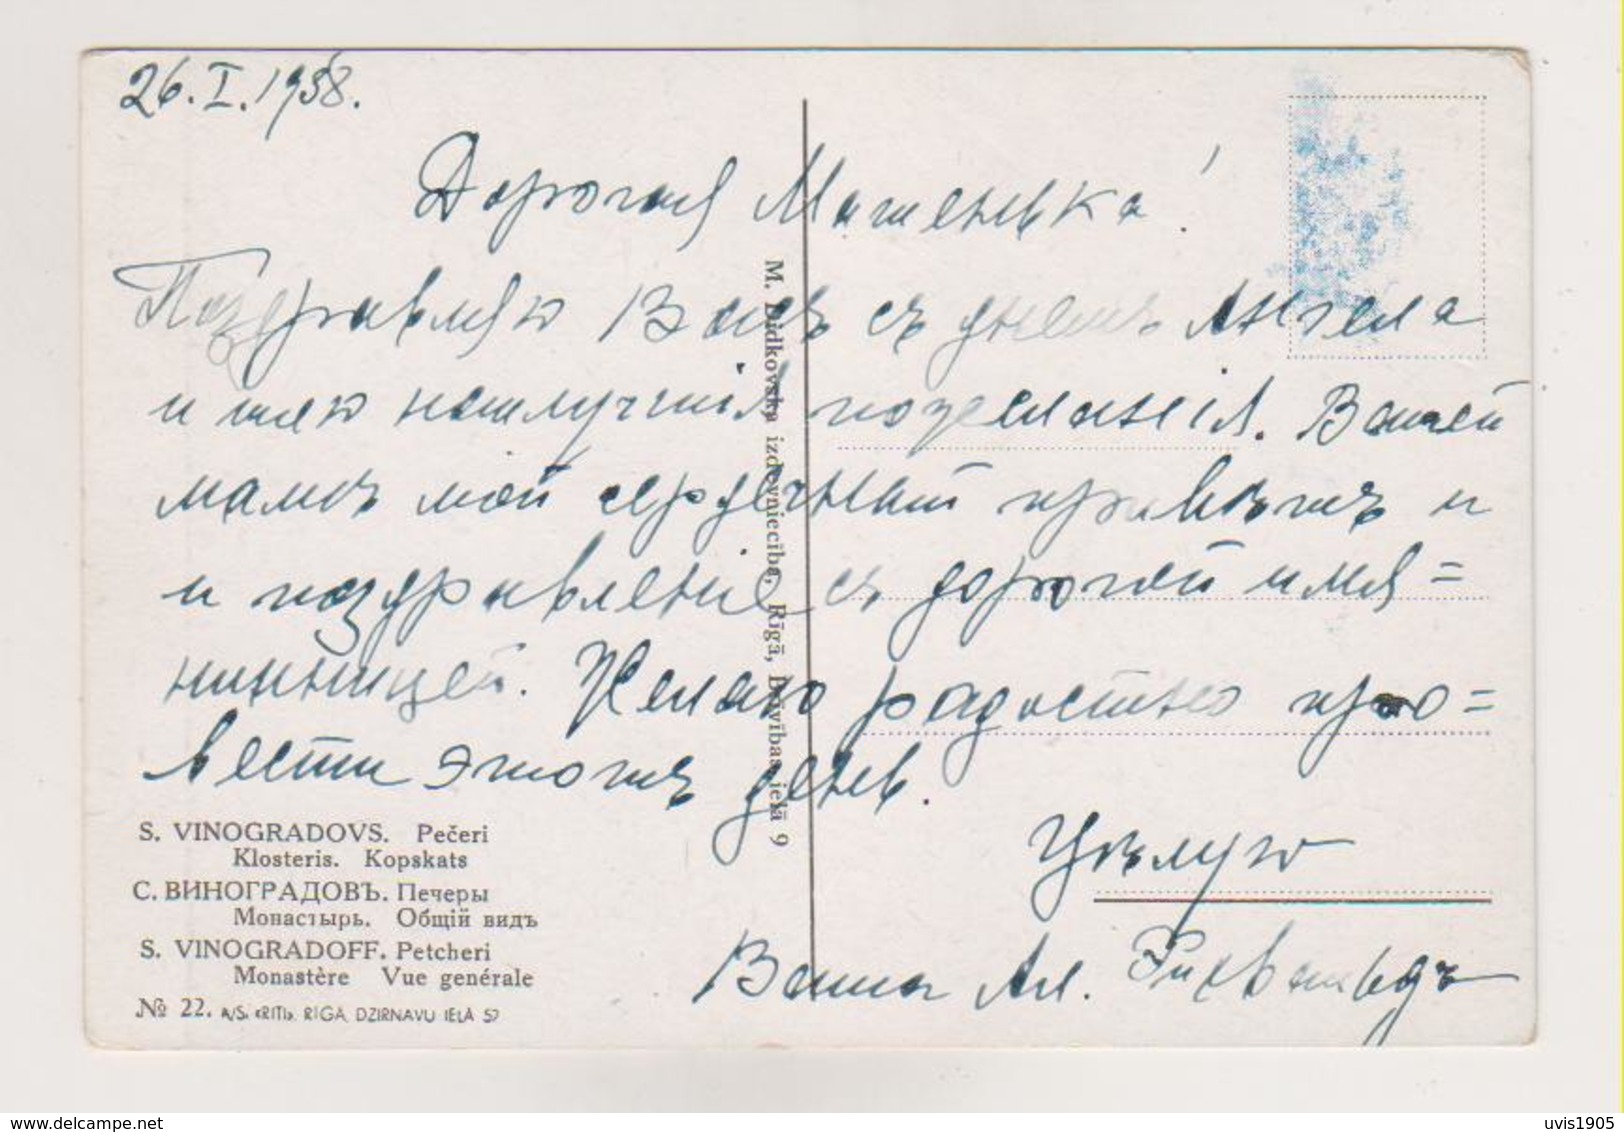 26.I.1938.
Дорогая Машенька!
Поздравляю Васъ съ днемъ Ангела
и шлю наилучшія пожеланія. Вашей
мамѣ мой сердечный привѣтъ и
и поздравленіе съ дорогой имя=
нинницей. Желаю радостно про=
вести этотъ день.
Цѣлую
Ваша Ал.
S. VINOGRADOVS. Pečeri
Klosteris. Kopskats
С. ВИНОГРАДОВЪ. Печеры
Монастырь. Общій видъ
S. VINOGRADOFF. Petcheri
Monastère Vue genérale
№ 22. A/S. «RITI». RIGA, DZIRNAVU IELA 57
M. Didkovska izdevniecība, Rīgā, Brīvības ielā 9
uvis1905